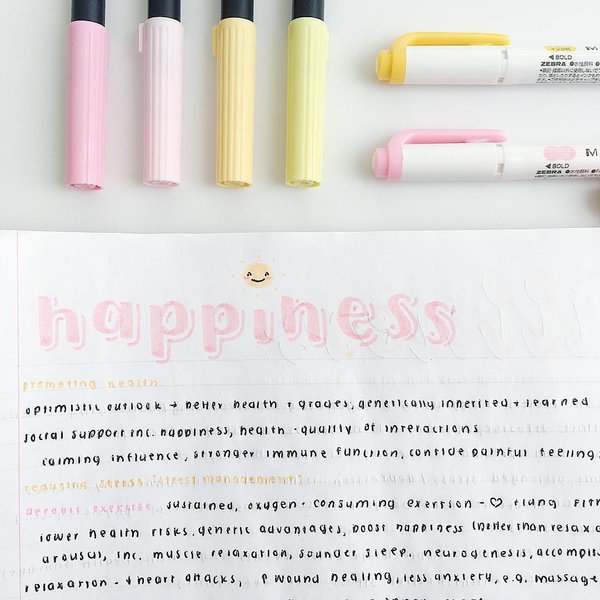 BOLD
ZEBRA
BOLD
ZEBRA
happiness
promoting health
optimistic outlook → better health + grades, genetically inherited + learned
social support inc. happiness, health - quality of interactions
calming influence, stronger immune function, confide painful feelings
reducing stress [stress management]
aerobic exercise sustained, oxygen-consuming exertion - ♡ + lung fitn
lower health risks. genetic advantages, boost happiness (better than relaxa
arousal, inc. muscle relaxation, sounder sleep. neurogenesis, accompli
relaxation - ↓ heart attacks, ↑ wound healing, less anxiety, e.g. massage